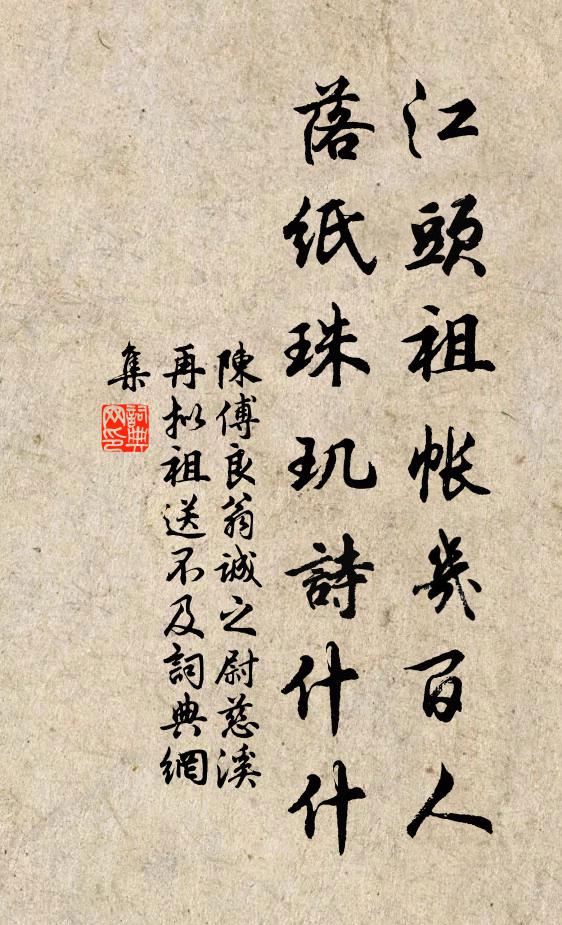 江頭祖帳幾百人
落紙珠玑詩什什
陳傅良翁誠之尉慈溪
再拟祖送不及詞典網
集
詞典網印